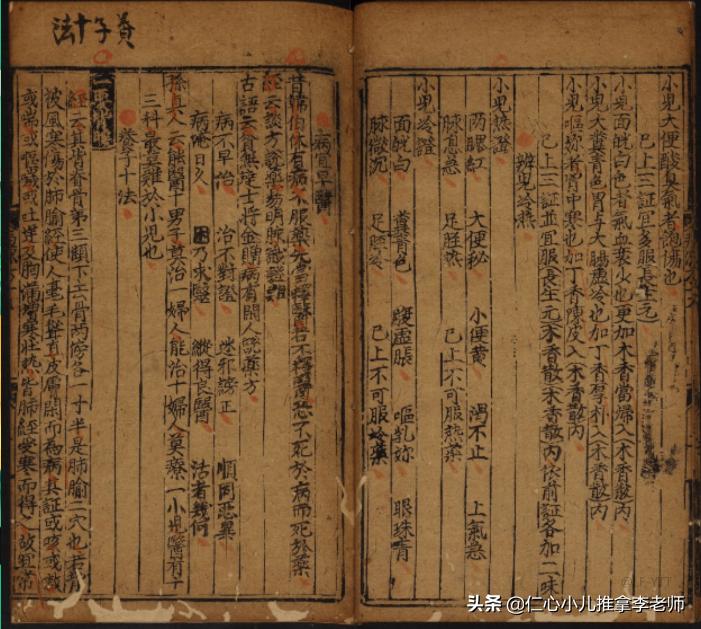 小兒大便酸臭氣者傷也
已上三証宜多服長生元
小兒面㿠白色者氣血衰少也更加木香當歸入木香散內
小兒大糞青色胃与大腸虛冷也加丁香厚朴入木香散內
小兒嘔妳者胃中寒也加丁香陳皮入木香散內
已上三証並宜服長生元木香散木香散內依前証各加二味
辨兒冷熱
小兒熱證
兩腮紅 大便秘 小便黄 渴不止 上氣急
脉息急 足脛熱 已上不可服熱藥
小兒冷證
面㿠白 糞青色 腹虛脹 嘔乳妳 眼珠青
脉微沉 足脛冷 已上不可服冷藥
養子十法
病宜早醫
昔韓伯休有病不服藥先當擇醫若不擇醫恐不死於病而死於藥
経云談方說藥易明脉識證難
古語云貧無達士將金贈病有閑人說藥方
病不早治 治不對證 迷邪謗正 順同惡異
病淹日久 困乃求醫 縱得良醫 活者幾何
孫真人云能醫十男子莫治一婦人能治十婦人莫療一小兒醫有十
三科最難於小兒也
養子十法
一要背煖
経云其背脊骨第三顀下去骨兩傍各一寸半是肺腧二穴也若背
被風寒傷於肺腧經使人毫毛聳直皮膚閉而為病其証或咳或嗽
或喘或嘔噦或吐逆及胸滿憎寒壯熱皆肺經受寒而得之故宜常
头条 @仁心小儿推拿李老师